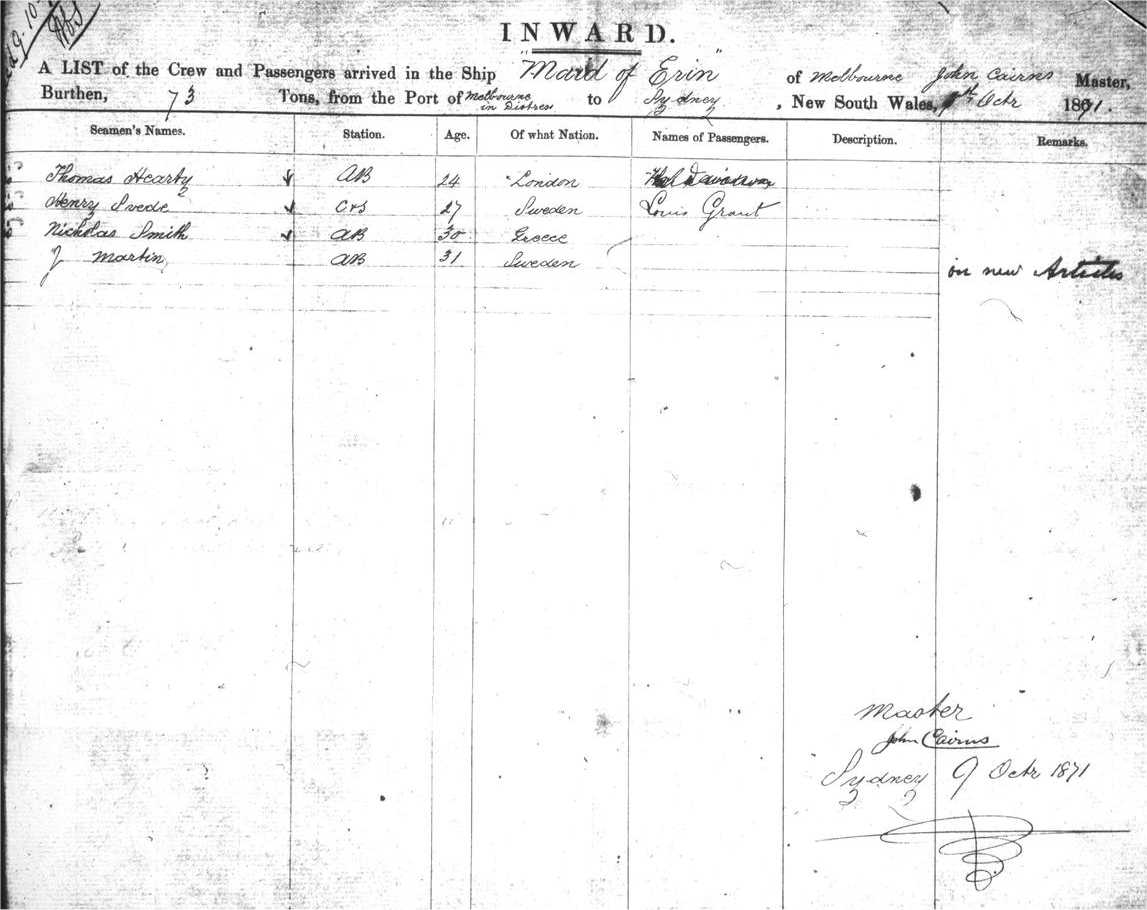 9.10
INWARD.
A LIST of the Crew and Passengers arrived in the Ship "Maid of Erin" of Melbourne John Cairns Master,
Burthen, 73 Tons, from the Port of Melbourne in Distress to Sydney, New South Wales, 9th Octr 1871.
Seamen's Names. Station. Age. Of what Nation. Names of Passengers. Description. Remarks.
Thomas Hearty AB 24 London
Henry Svede C&S 27 Sweden Louis Grant
Nicholas Smith AB 30 Greece
J Martin AB 31 Sweden on new Articles
Master
John Cairns
Sydney 9 Octr 1871